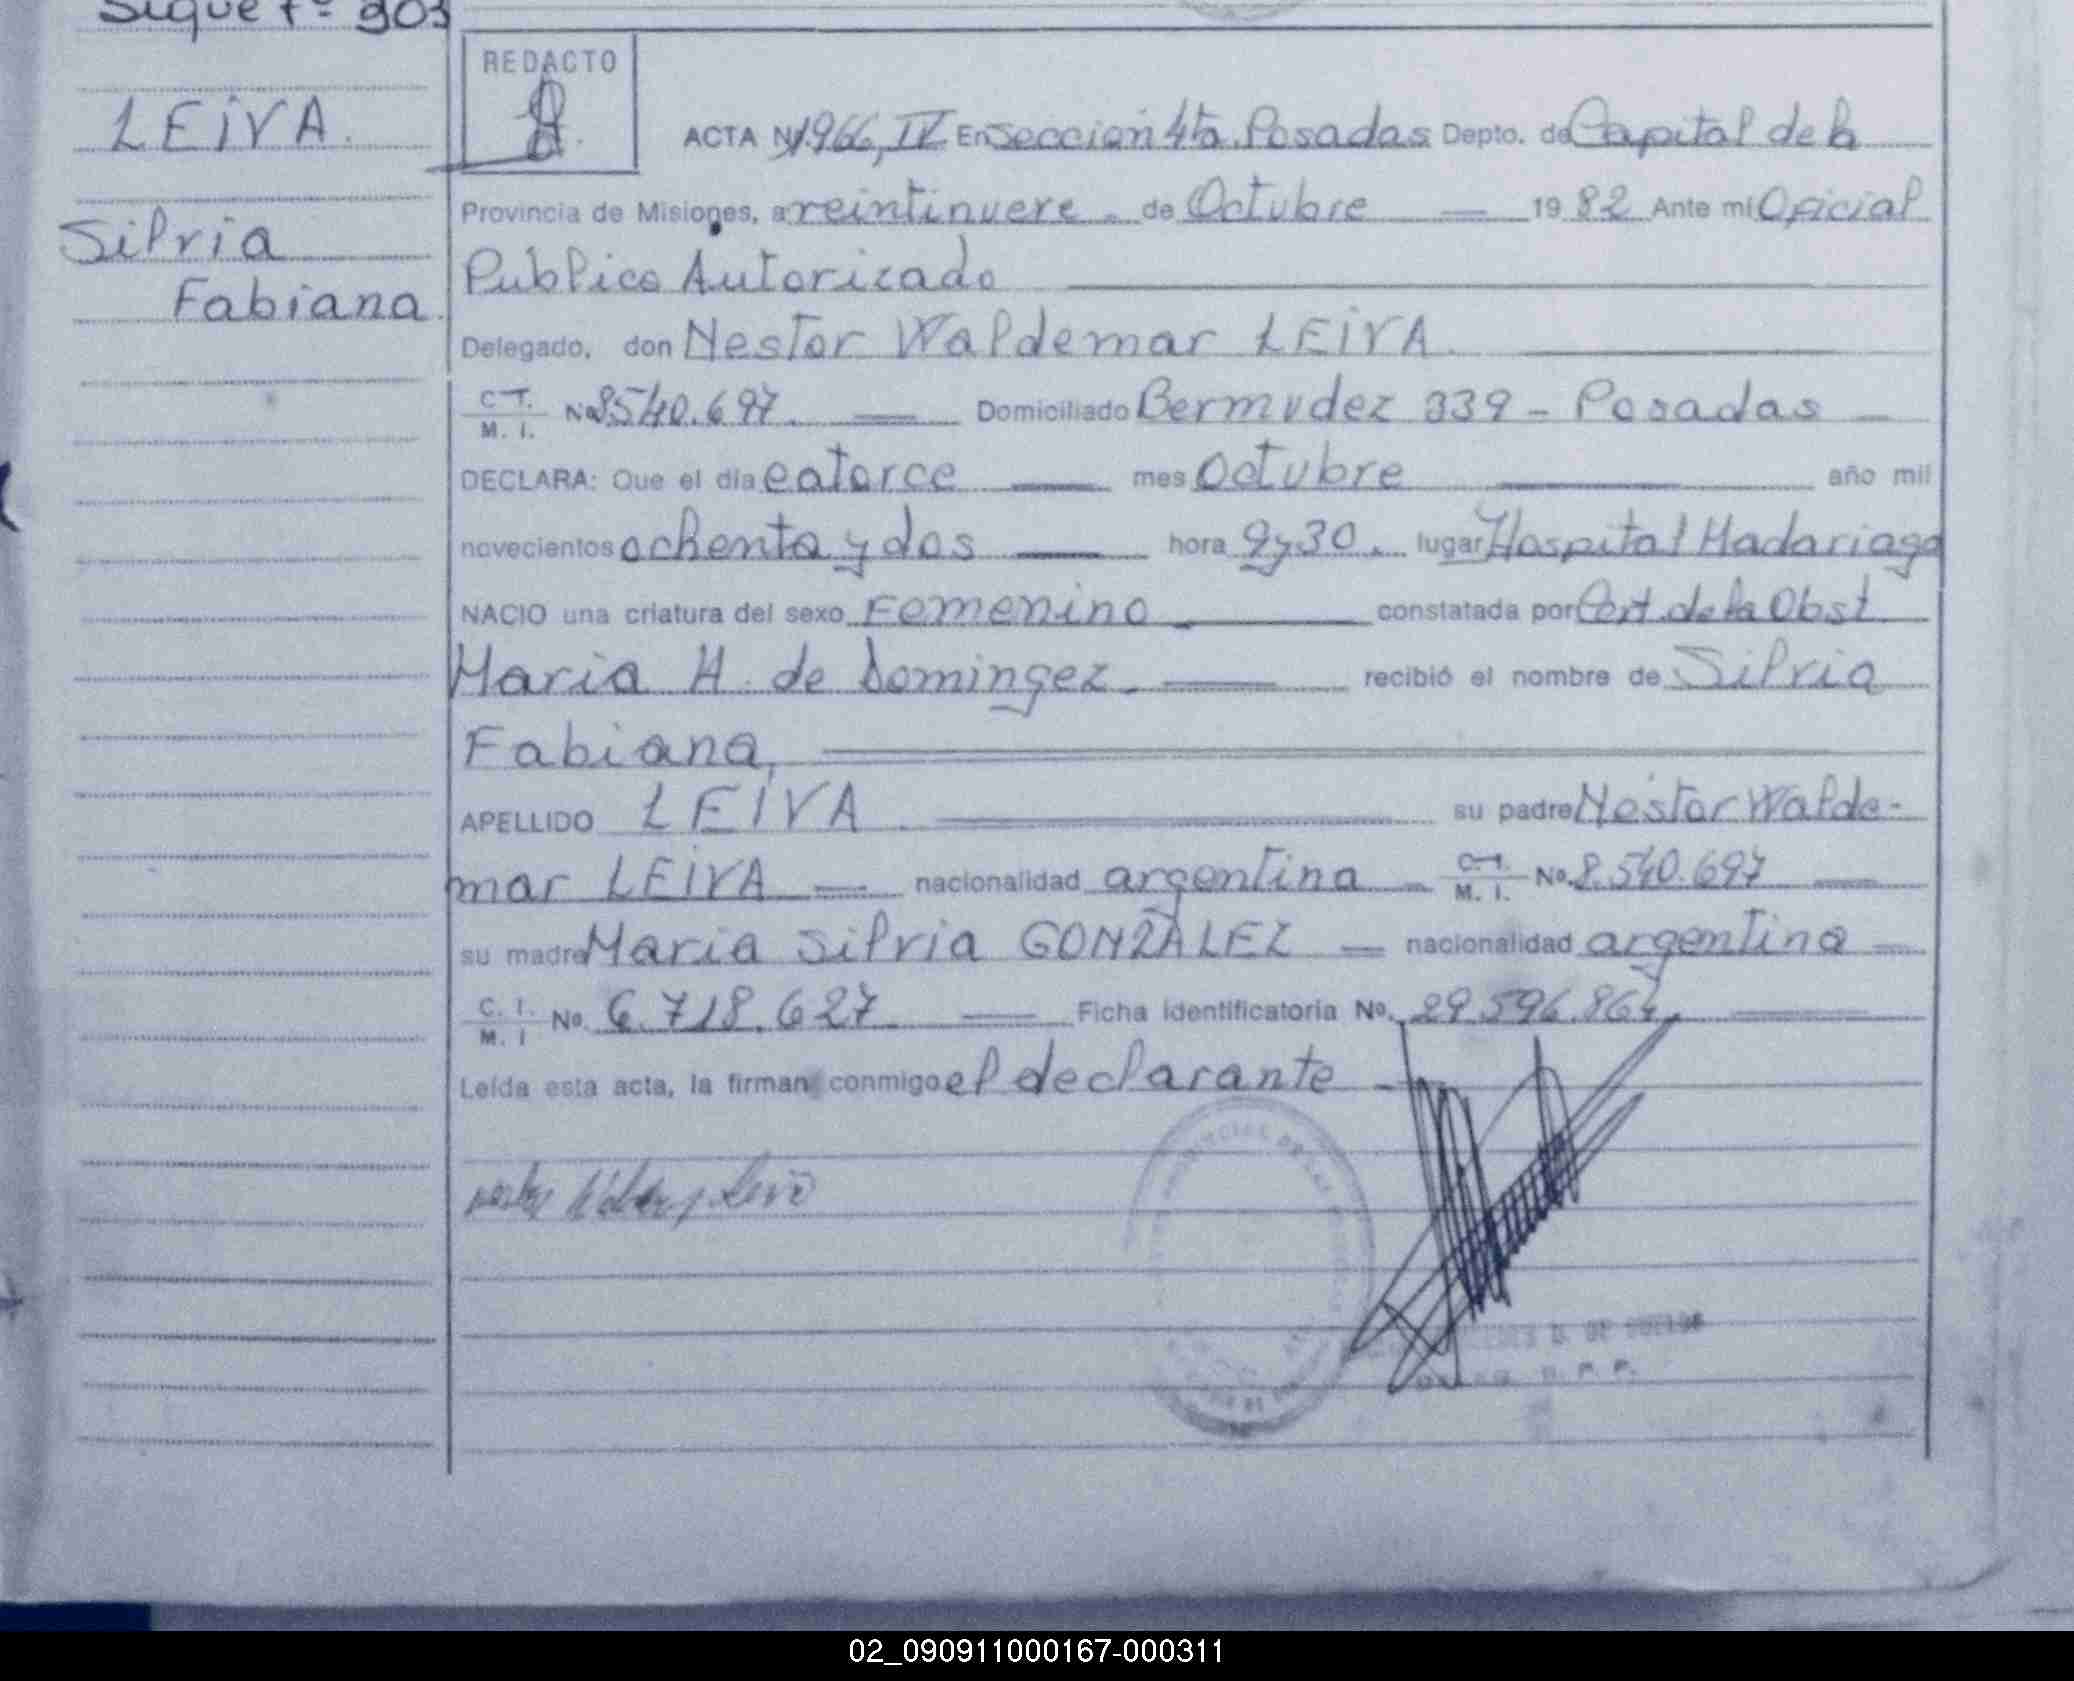 Sigue fº 903
LEIVA.
Silvia
Fabiana.
REDACTO
ACTA Nº 1966, IV En Sección 4ta. Posadas Depto. de Capital de la
Provincia de Misiones, a veintinueve. de Octubre — 1982 Ante mi Oficial
Publico Autorizado
Delegado, don Nestor Waldemar LEIVA.
C. I. M. I. No 8540.697. — Domiciliado Bermudez 339 - Posadas —
DECLARA: Que el día catorce — mes Octubre — año mil
novecientos ochenta y dos — hora 9y30. lugar Hospital Madariaga
NACIO una criatura del sexo Femenino — constatada por Cert. de la Obst.
Maria H. de Domingez. — recibió el nombre de Silvia
Fabiana,
APELLIDO LEIVA — su padre Nestor Walde-
mar LEIVA — nacionalidad argentina — C. I. M. I. No. 8.540.697 —
su madre Maria Silvia GONZALEZ — nacionalidad argentina —
C. I. M. I No. 6.718.627. — Ficha identificatoria No. 29.596.864. —
Leída esta acta, la firman conmigo el declarante —
02_090911000167-000311